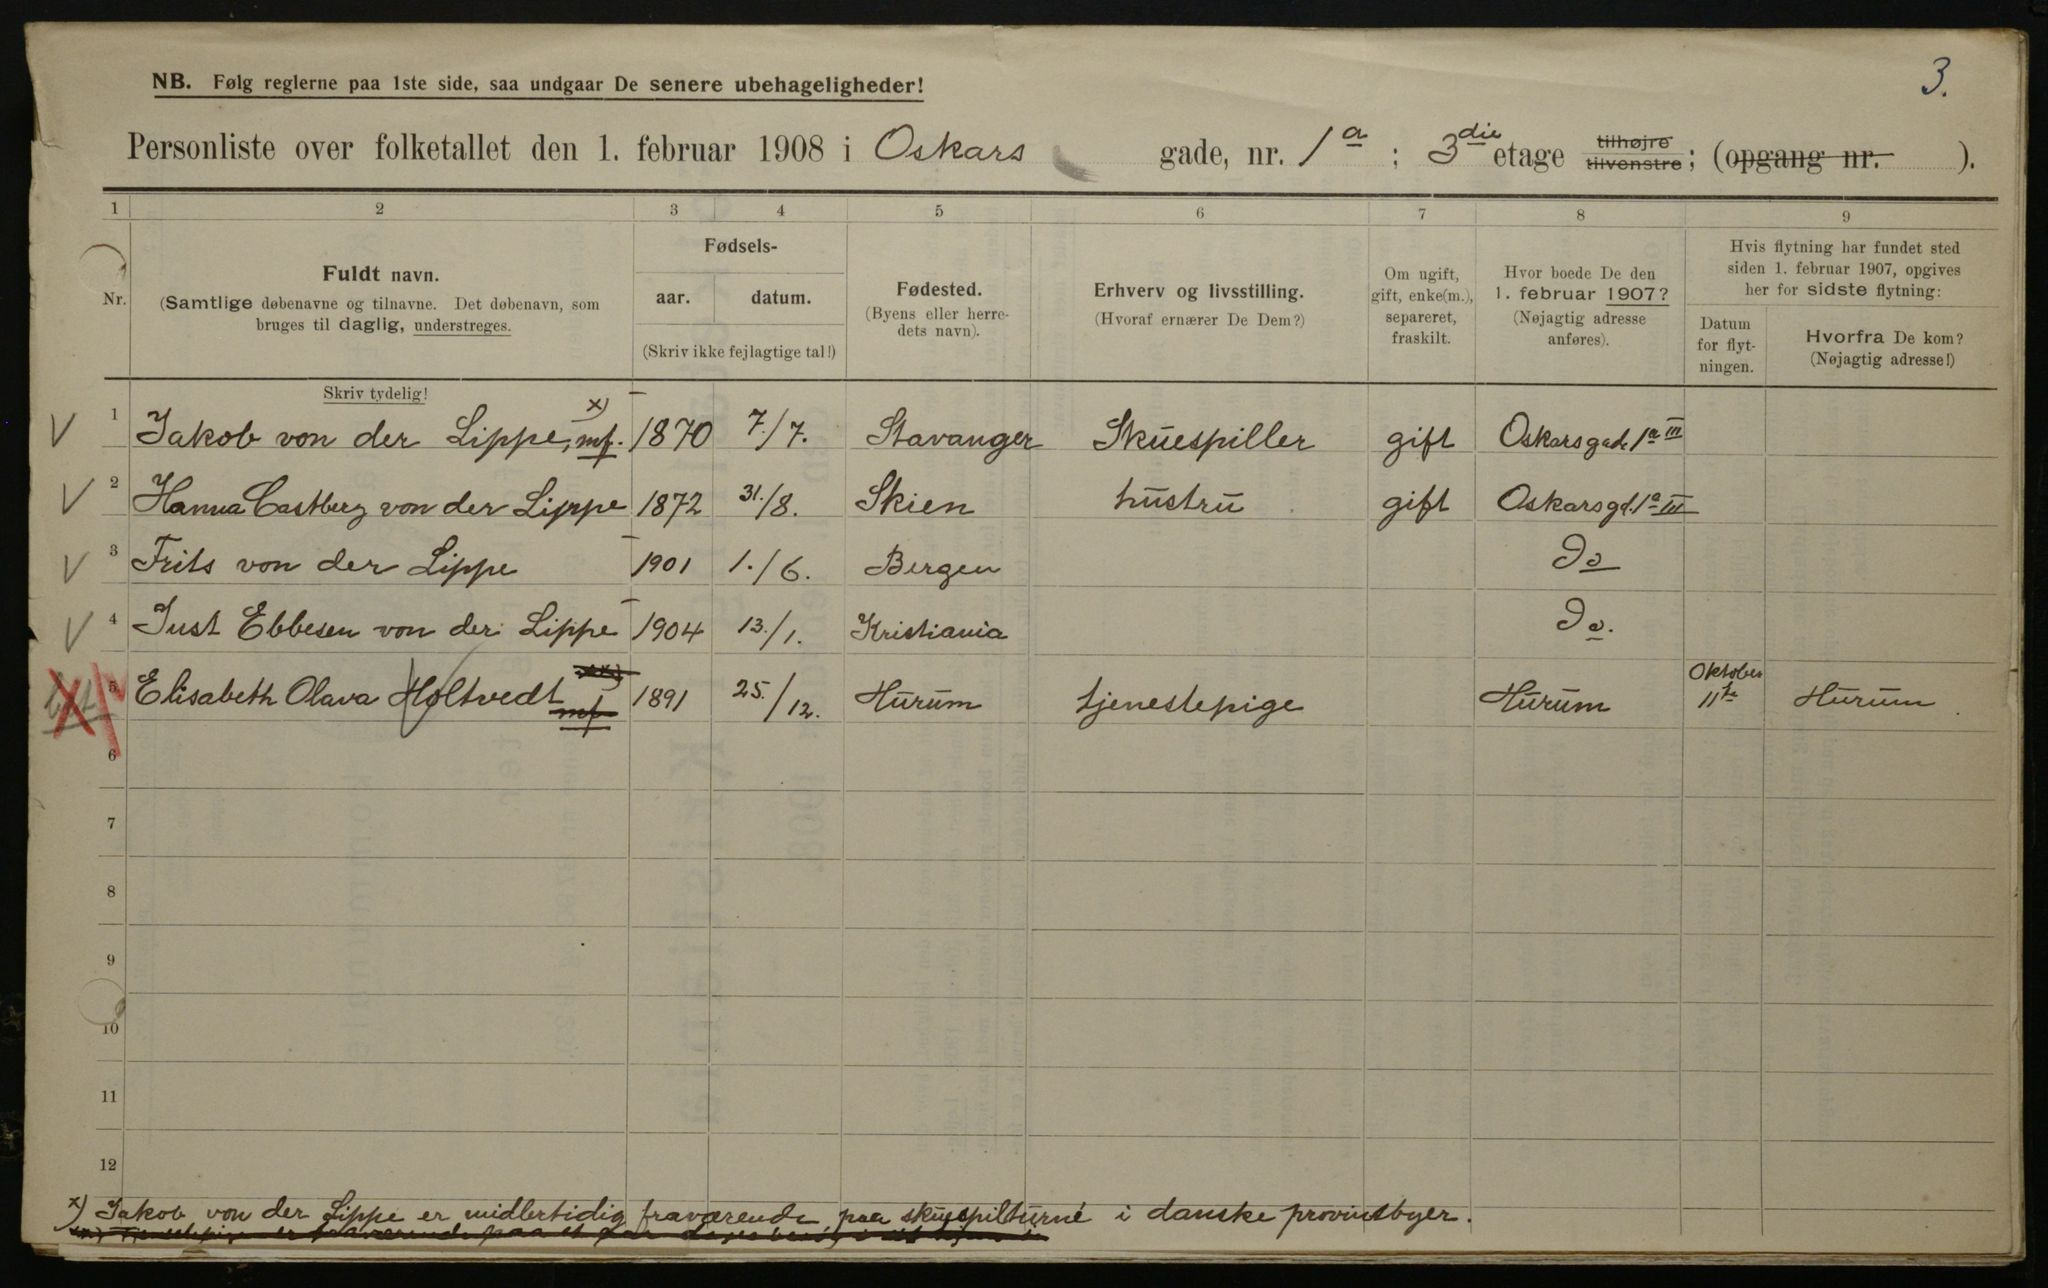 3.
NB. Følg reglerne paa 1ste side, saa undgaar De senere ubehageligheder!
Personliste over folketallet den 1. februar 1908 i Oskars gade, nr. 1a ; 3die etage tilhøjre tilvenstre; (opgang nr. ).
1 2 3 4 5 6 7 8 9
Nr.
Fuldt navn.
(Samtlige døbenavne og tilnavne. Det døbenavn, som
bruges til daglig, understreges.
Skriv tydelig!
Fødsels-
aar. datum.
(Skriv ikke fejlagtige tal!)
Fødested.
(Byens eller herre-
dets navn).
Erhverv og livsstilling.
(Hvoraf ernærer De Dem?)
Om ugift,
gift, enke(m.),
separeret,
fraskilt.
Hvor boede De den
1. februar 1907?
(Nøjagtig adresse
anføres).
Hvis flytning har fundet sted
siden 1. februar 1907, opgives
her for sidste flytning:
Datum
for flyt-
ningen.
Hvorfra De kom?
(Nøjagtig adresse!)
1 Jakob von der Lippe, x) mf. 1870 7./7. Stavanger Skuespiller gift Oskarsgade 1a III
2 Hanna Castberg von der Lippe 1872 31./8. Skien hustru gift Oskarsgd. 1a III
3 Frits von der Lippe 1901 1./6. Bergen Do
4 Just Ebbesen von der Lippe 1904 13./1. Kristiania Do.
5 Elisabeth Olava Holtvedt xx) mf 1891 25./12. Hurum tjenestepige Hurum Oktober 11te Hurum
6
7
8
9
10
11
12
x) Jakob von der Lippe er midlertidig fraværende paa skuespilturné i danske provindsbyer.